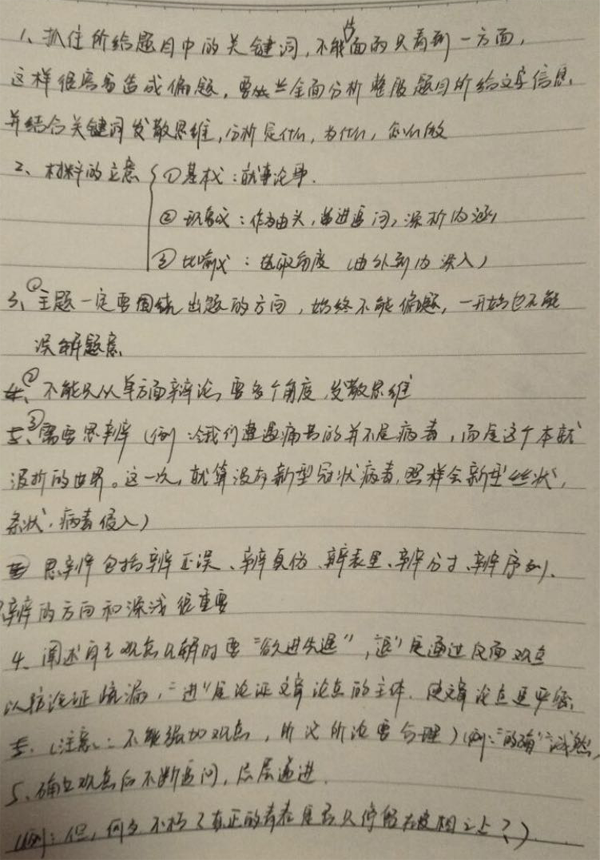 1、抓住所给题目中的关键词,不能面的只看到一方面,
这样很容易造成偏题,要从三全面分析整段题目所给文字信息,
并结合关键词发散思维,分析是什么,为什么,怎么做
2、材料的立意 ①基本义:就事论事.
②现象义:作为由头,推进追问,深析内涵
③比喻义:选取角度(由外到内深入)
3、①主题一定要围绕出题的方向,始终不能偏题,一开始也不能
误解题意
②不能只从单方面辩论,要多个角度,发散思维
③需要思辨(例:令我们遭遇痛苦的并不是病毒,而是这个本就
波折的世界。这一次,就算没有新型冠状病毒,照样会新型丝状,
条状,病毒侵入)
思辨包括辨正误、辨真伪、辨表里、辨分寸、辨序列、
辨的方向和深浅很重要
4、阐述自己观点见解时要"欲进先退","退"是通过反面观点
以防论证疏漏,"进"是论证文章论点的主体.使文章论点更牢固,
(注意:不能强加观点,所论要合理)(例:"的确""诚然
5、确立观点后不断追问,层层递进.
(例:但,何为不朽?真正的存在是否只停留在皮相之上?)